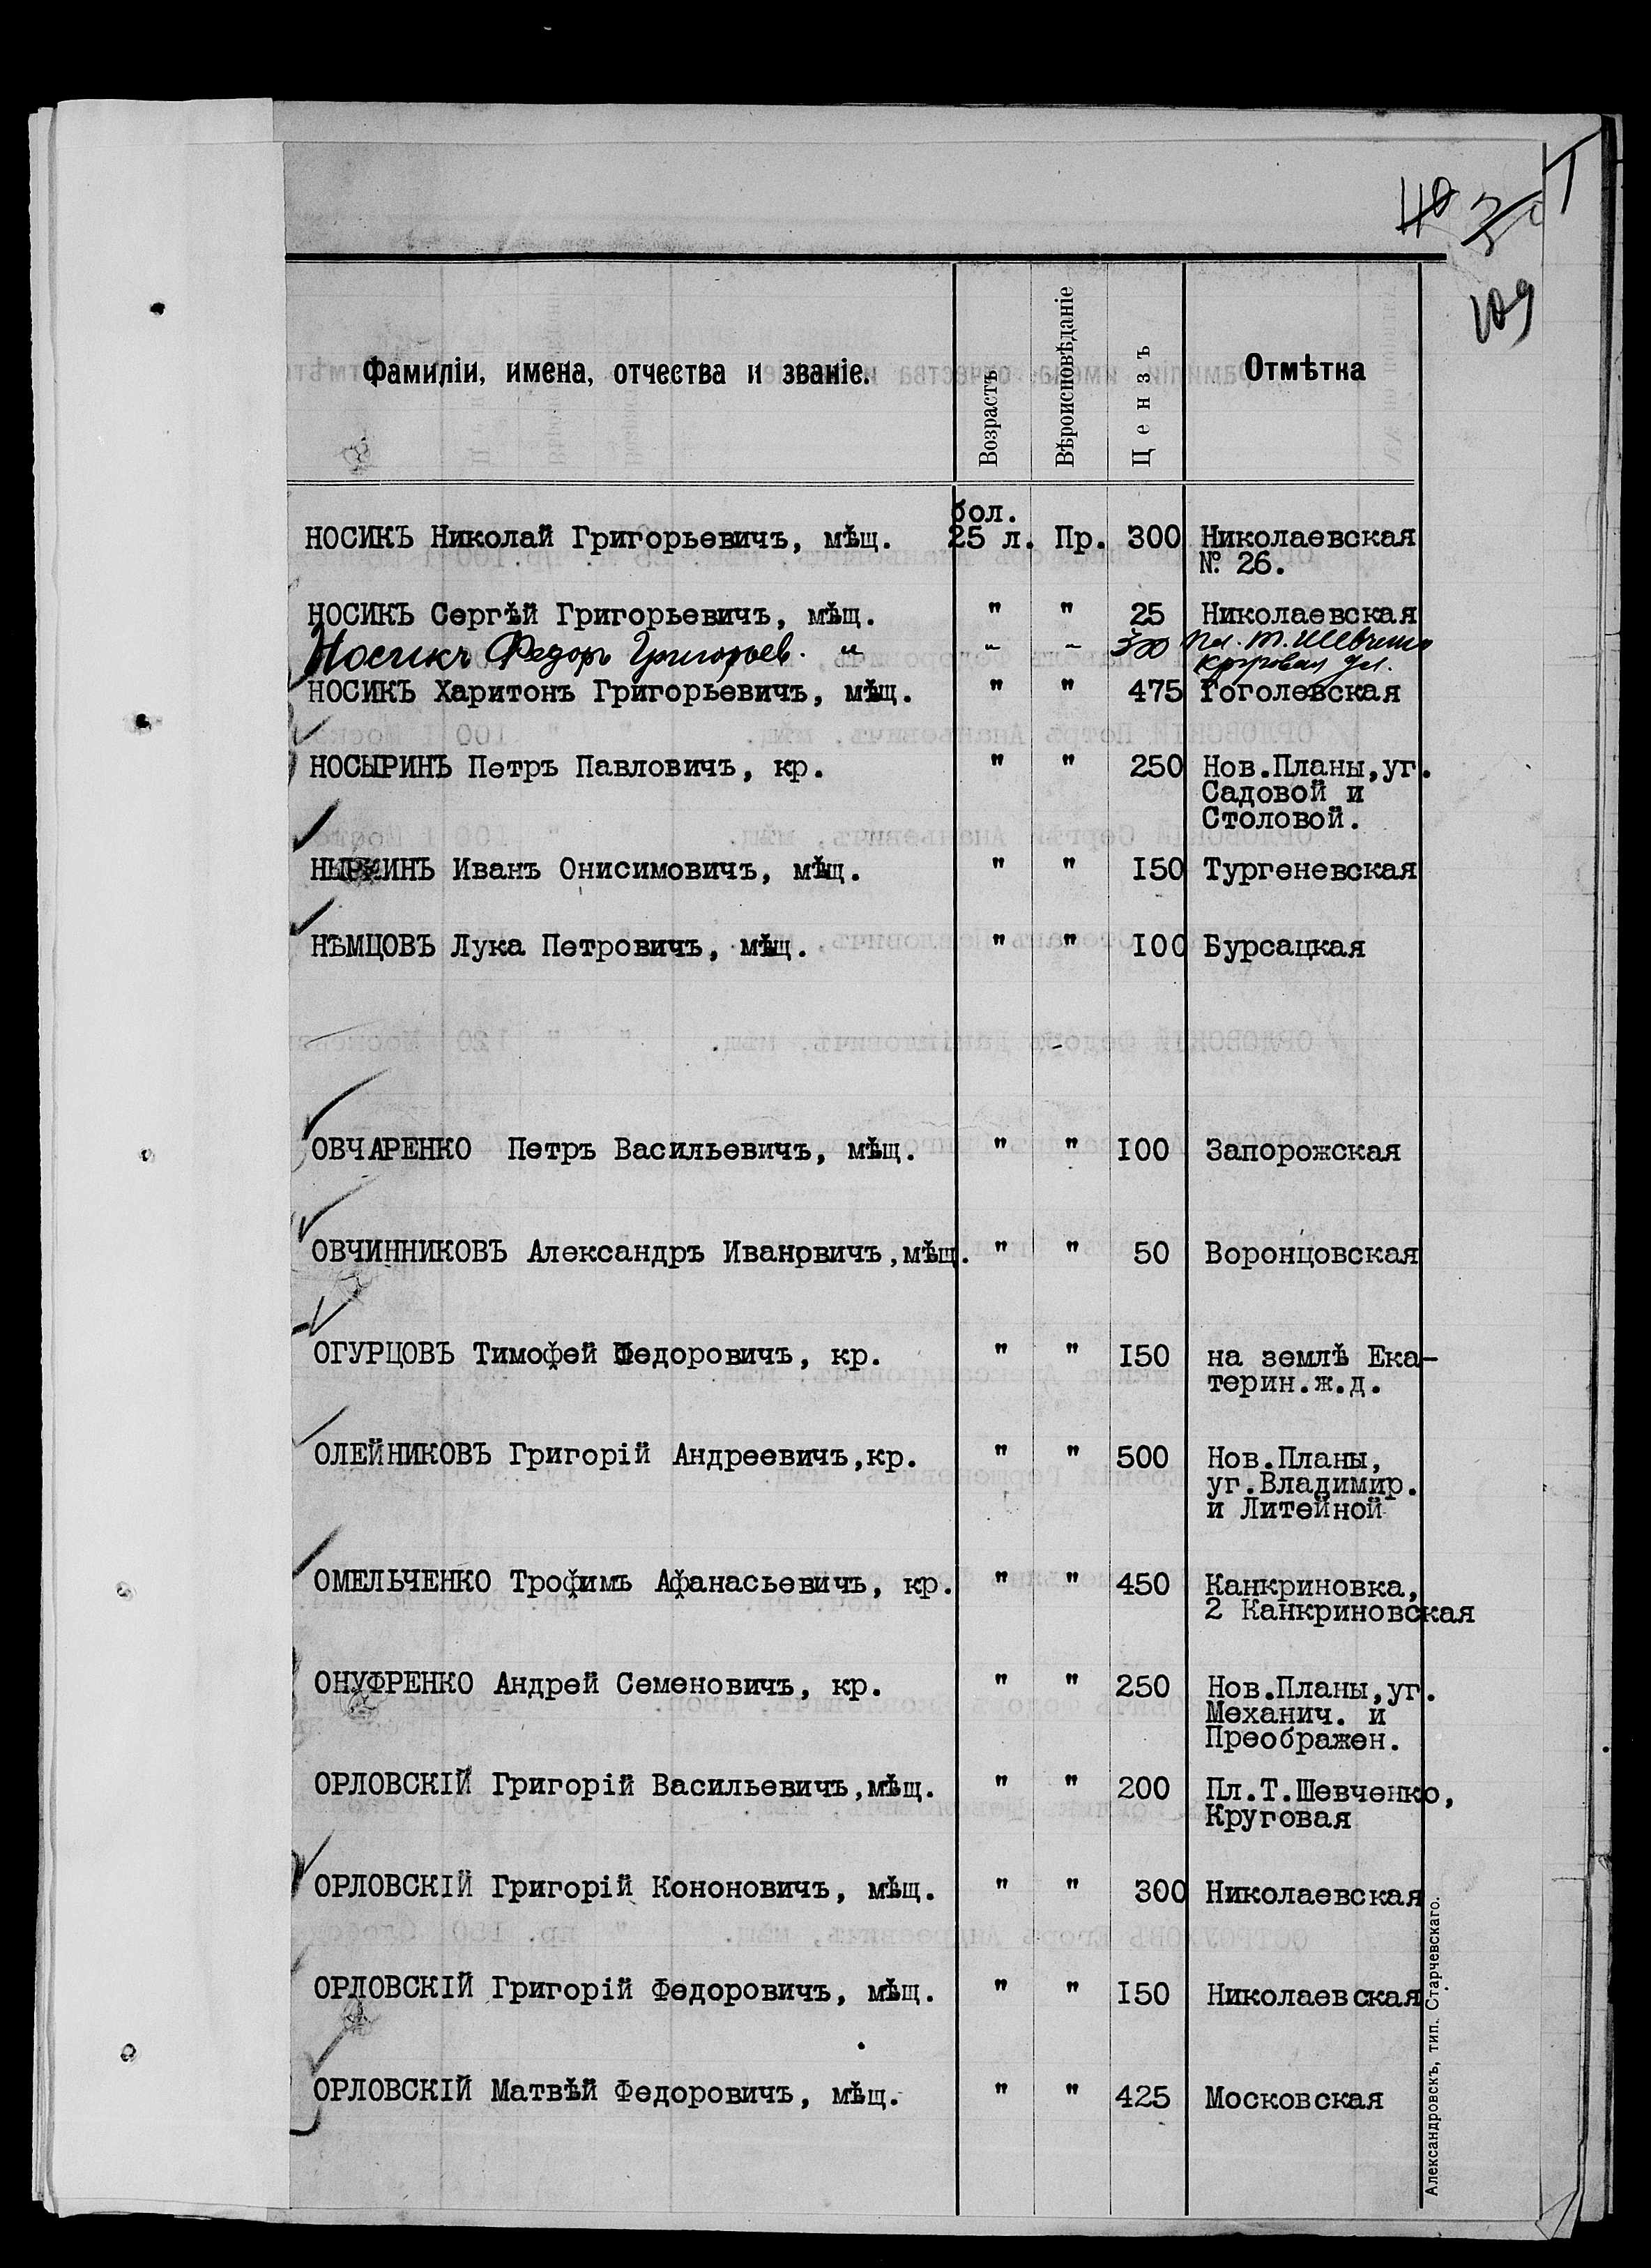 109
Фамиліи, имена, отчества и званіе. Возрастъ Вѣроисповѣданіе Цензъ Отмѣтка
бол.
НОСИКЪ Николай Григорьевичъ, мѣщ. 25 л. Пр. 300 Николаевская
№ 26.
НОСИКЪ Сергѣй Григорьевичъ, мѣщ. " " 25 Николаевская
Носикъ Федоръ Григорьев. " " " 300 Пл. Т. Шевченко
Круговая ул.
НОСИКЪ Харитонъ Григорьевичъ, мѣщ. " " 475 Гоголевская
НОСЫРИНЪ Петръ Павловичъ, кр. " " 250 Нов.Планы,уг.
Садовой и
Столовой.
НЫРКИНЪ Иванъ Онисимовичъ, мѣщ. " " I50 Тургеневская
НѢМЦОВЪ Лука Петровичъ, мѣщ. " " I00 Бурсацкая
ОВЧАРЕНКО Петръ Васильевичъ, мѣщ. " " I00 Запорожская
ОВЧИННИКОВЪ Александръ Ивановичъ,мѣщ. " " 50 Воронцовская
ОГУРЦОВЪ Тимофей Федоровичъ, кр. " " I50 на землѣ Ека-
терин.ж.д.
ОЛЕЙНИКОВЪ Григорій Андреевичъ,кр. " " 500 Нов.Планы,
уг.Владимир.
и Литейной
ОМЕЛЬЧЕНКО Трофимъ Афанасьевичъ, кр. " " 450 Канкриновка,
2 Канкриновская
ОНУФРЕНКО Андрей Семеновичъ, кр. " " 250 Нов.Планы,уг.
Механич. и
Преображен.
ОРЛОВСКІЙ Григорій Васильевичъ,мѣщ. " " 200 Пл.Т.Шевченко,
Круговая
ОРЛОВСКІЙ Григорій Кононовичъ, мѣщ. " " 300 Николаевская
ОРЛОВСКІЙ Григорій Федоровичъ, мѣщ. " " I50 Николаевская
ОРЛОВСКІЙ Матвѣй Федоровичъ, мѣщ. " " 425 Московская
Александровскъ, тип. Старчевскаго.